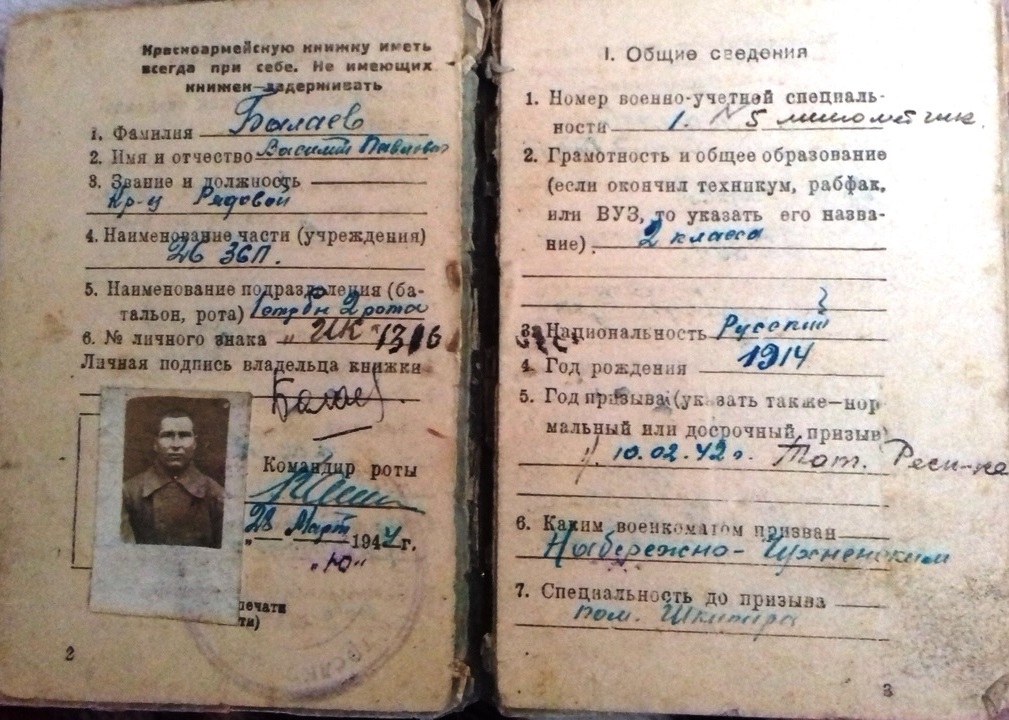 Красноармейскую книжку иметь
всегда при себе. Не имеющих
книжек—задерживать
1. Фамилия Балаев
2. Имя и отчество Василий Павлович
3. Звание и должность
Кр-ц Рядовой
4. Наименование части (учреждения)
26 ЗСП.
5. Наименование подразделения (ба-
тальон, рота) 1стрбн 2 рота
6. № личного знака „ИК" 1316
Личная подпись владельца книжки
Балаев
Командир роты
„28" Март 1944 г.
„Ю"
печати
2
I. Общие сведения
1. Номер военно-учетной специаль-
ности 1. № 5 минометчик.
2. Грамотность и общее образование
(если окончил техникум, рабфак,
или ВУЗ, то указать его назва-
ние) 2 класса
3. Национальность Русский
4. Год рождения 1914
5. Год призыва (указать также—нор
мальный или досрочный призыв)
10.02.42 г. Тат. Респ-ка
6. Каким военкоматом призван
Набережно-
7. Специальность до призыва
пом. Шкипера
3